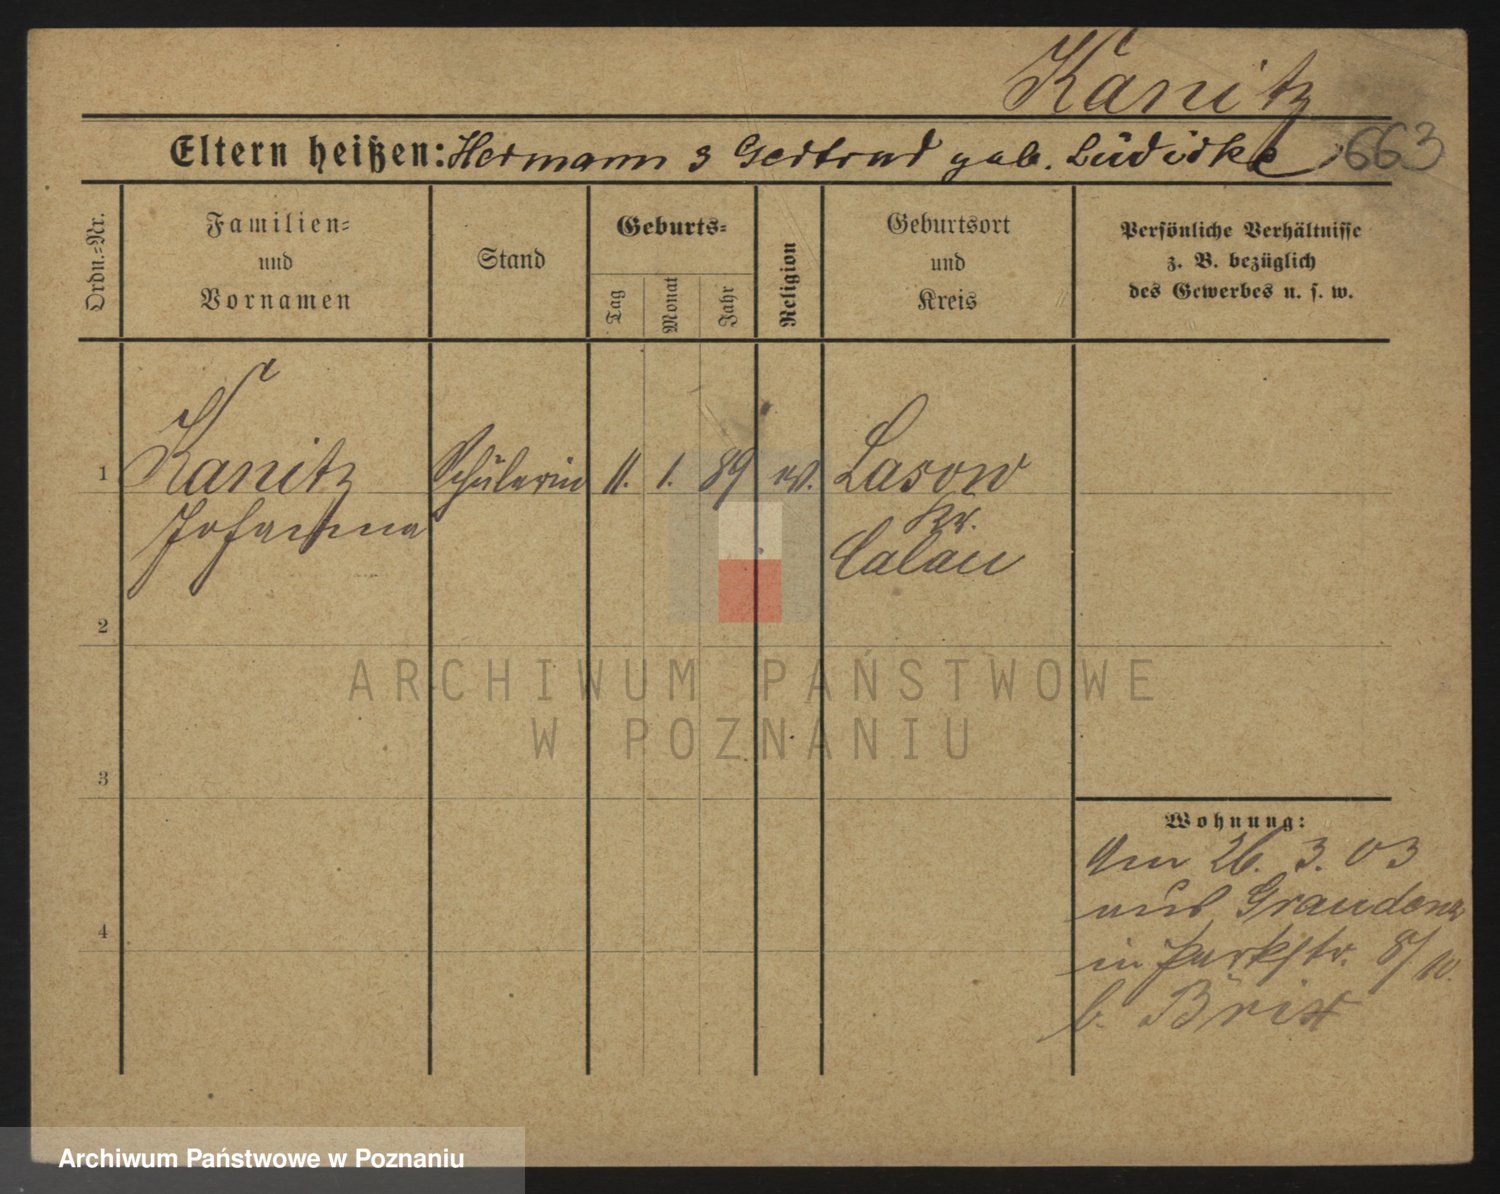 Kanitz
Eltern heißen: Hermann & Gertrud geb. Lüdicke
663
Ordn.=Nr.
Familien=
und
Vornamen
Stand
Geburts=
Tag
Monat
Jahr
Religion
Geburtsort
und
Kreis
Persönliche Verhältnisse
z. B. bezüglich
des Gewerbes u. s. w.
1
Kanitz
Schülerin
11.
1.
89
ev.
Lasow
Kr.
Calau
2
ARCHIWUM PAŃSTWOWE
W POZNANIU
3
Wohnung:
Am 26. 3. 03
aus Graudenz
in Parkstr. 8/10.
b. Brix
4
Archiwum Państwowe w Poznaniu